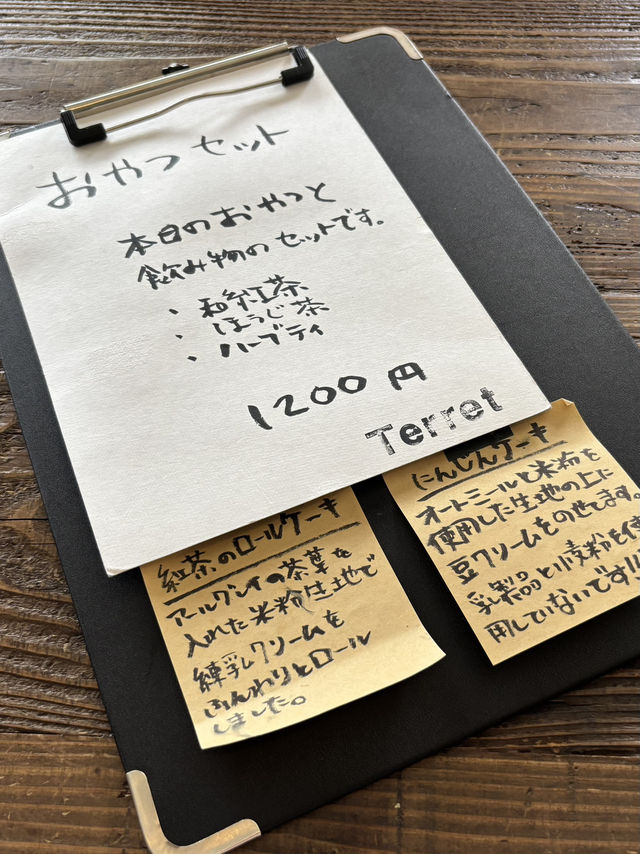 おやつセット
本日のおやつと
飲み物のセットです。
・和紅茶
・ほうじ茶
・ハーブティ
1200円
Terret
紅茶のロールケーキ
アールグレイの茶葉を
入れた米粉生地で
練乳クリームを
ふんわりとロール
しました。
にんじんケーキ
オートミールと米粉を
使用した生地の上に
豆クリームをのせてます。
乳製品と小麦粉を使
用していないです!!